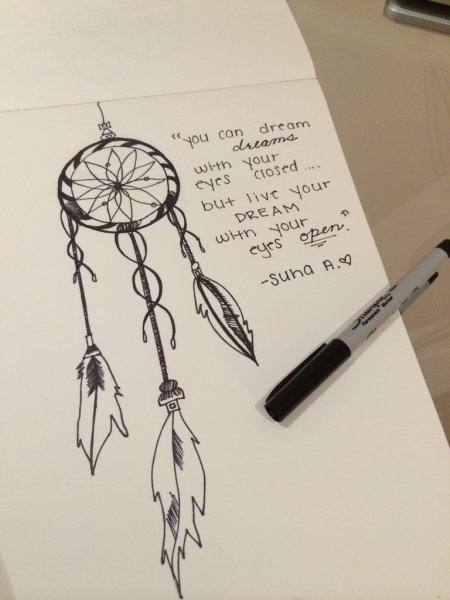 "you can dream
dreams
with your
eyes closed....
but live your
DREAM
with your
eyes open."
-Suha A.♡
Sharpie
Permanent Marker